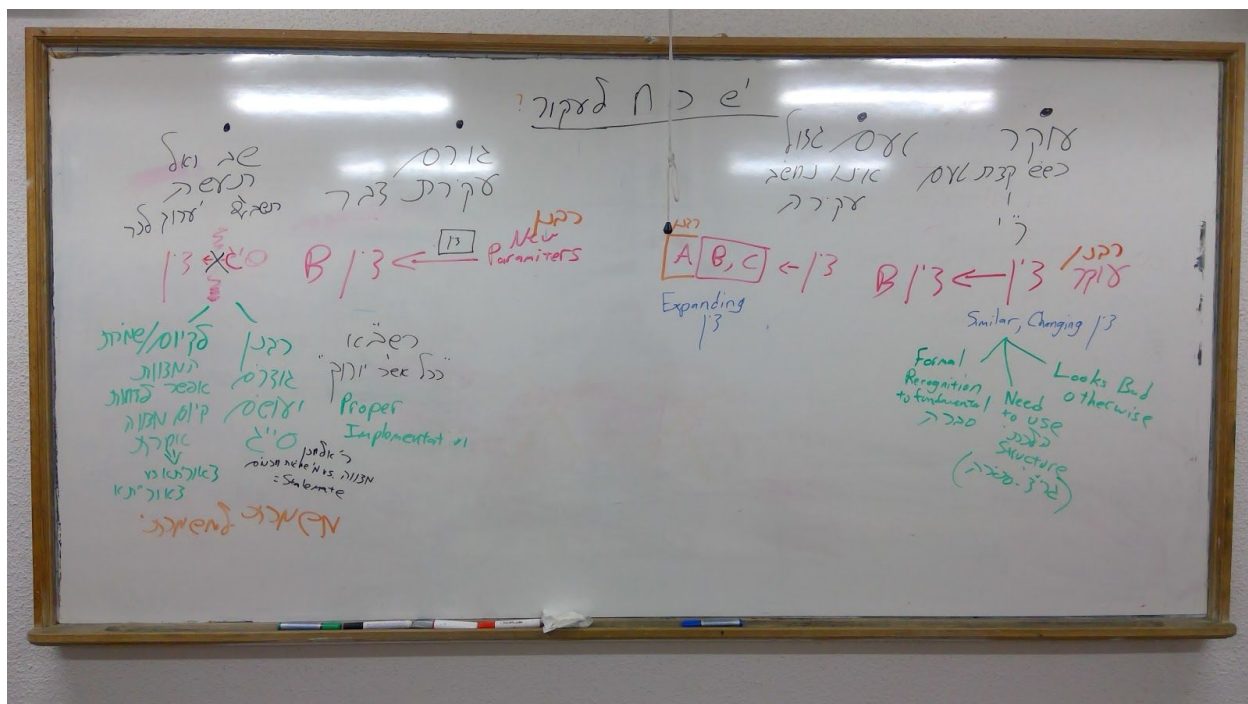 יש כח לעקור?
עוקר
כשיש קצת טעם
ר"י
רבנן
עוקר
דין ← דין B
Similar, Changing דין
Formal
Recognition
to fundamental
סברה
Need
to use
Structure
Looks Bad
otherwise
טעם גדול
אינו נחשב
עקירה
רבנן
דין → A B, C
Expanding
דין
גורם
עקירת דבר
רבנן
New
Paramiters
דין
דין B
רשב"א
"ככל אשר יורוך"
Proper
Implementation
שב ואל
תעשה
סיג
דין
רבנן
גוזרים
ועושים
סייג
= Stalemate
לקיום/שמירת
המצוות
אפשר לדחות
קיום מצווה
אקרת
דאורייתא vs
דאורייתא
משמרת למשמרתי